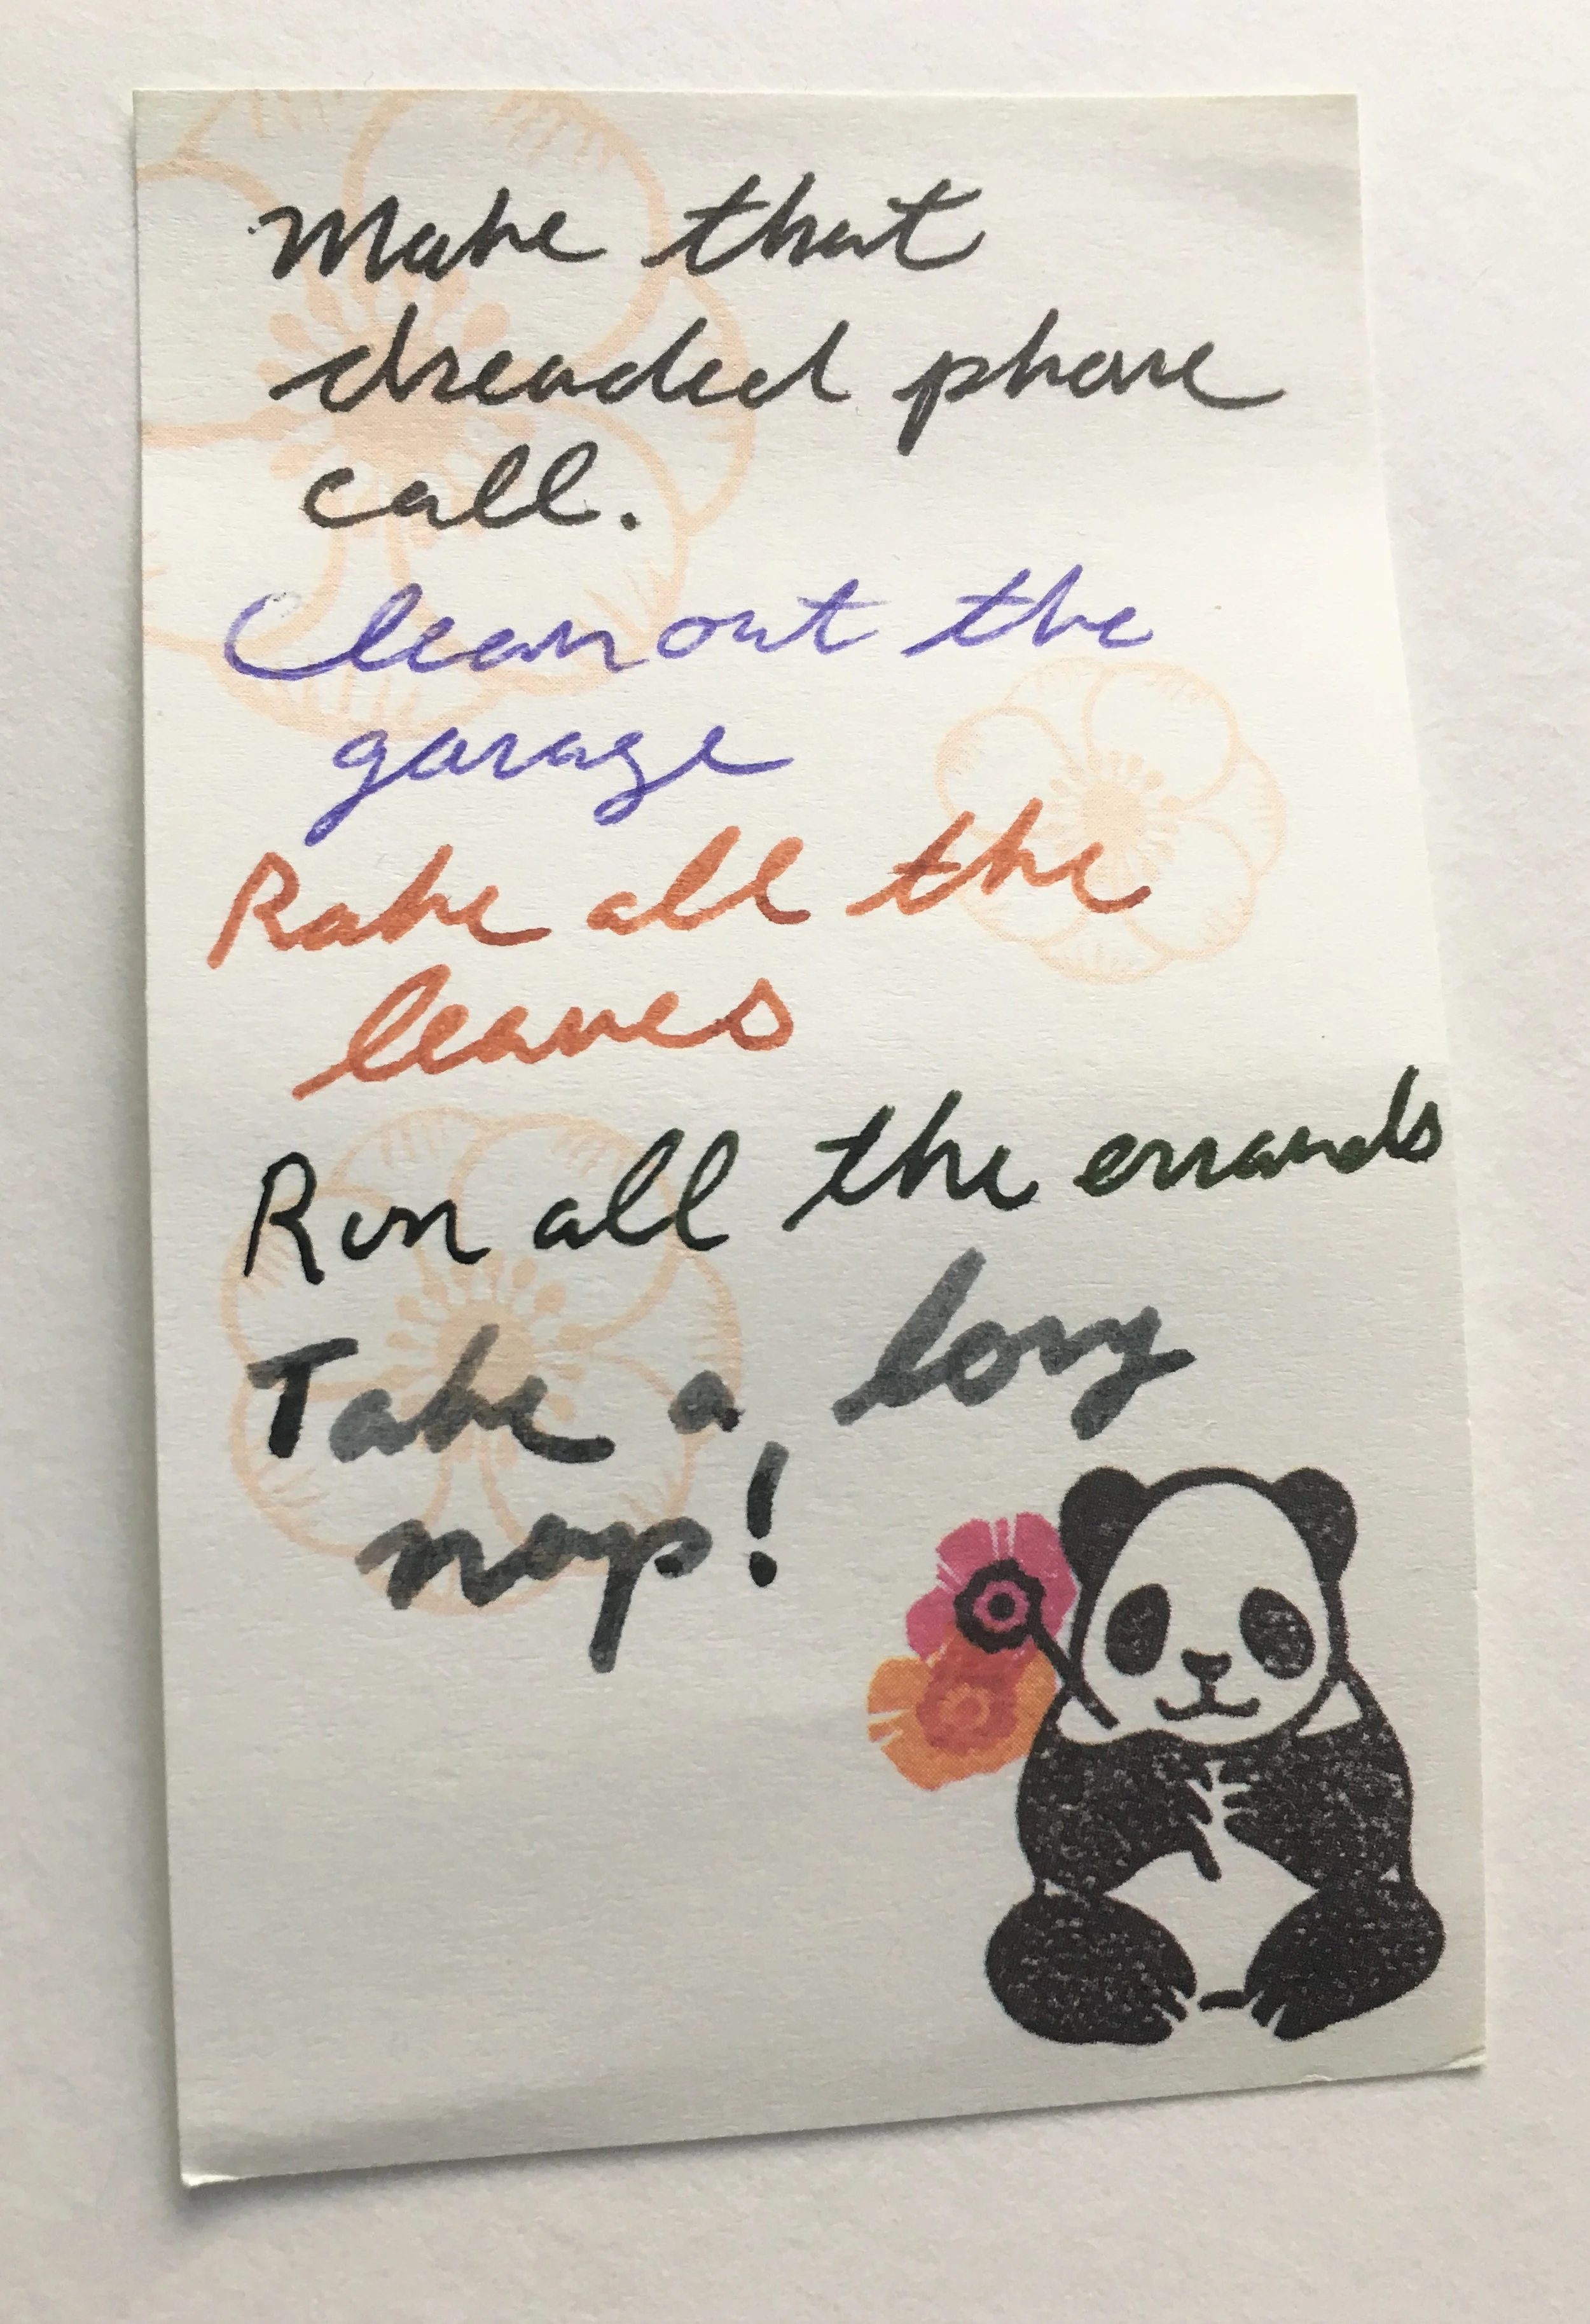 Make that
dreaded phone
call.
Clean out the
garage
Rake all the
leaves
Run all the errands
Take a long
nap!